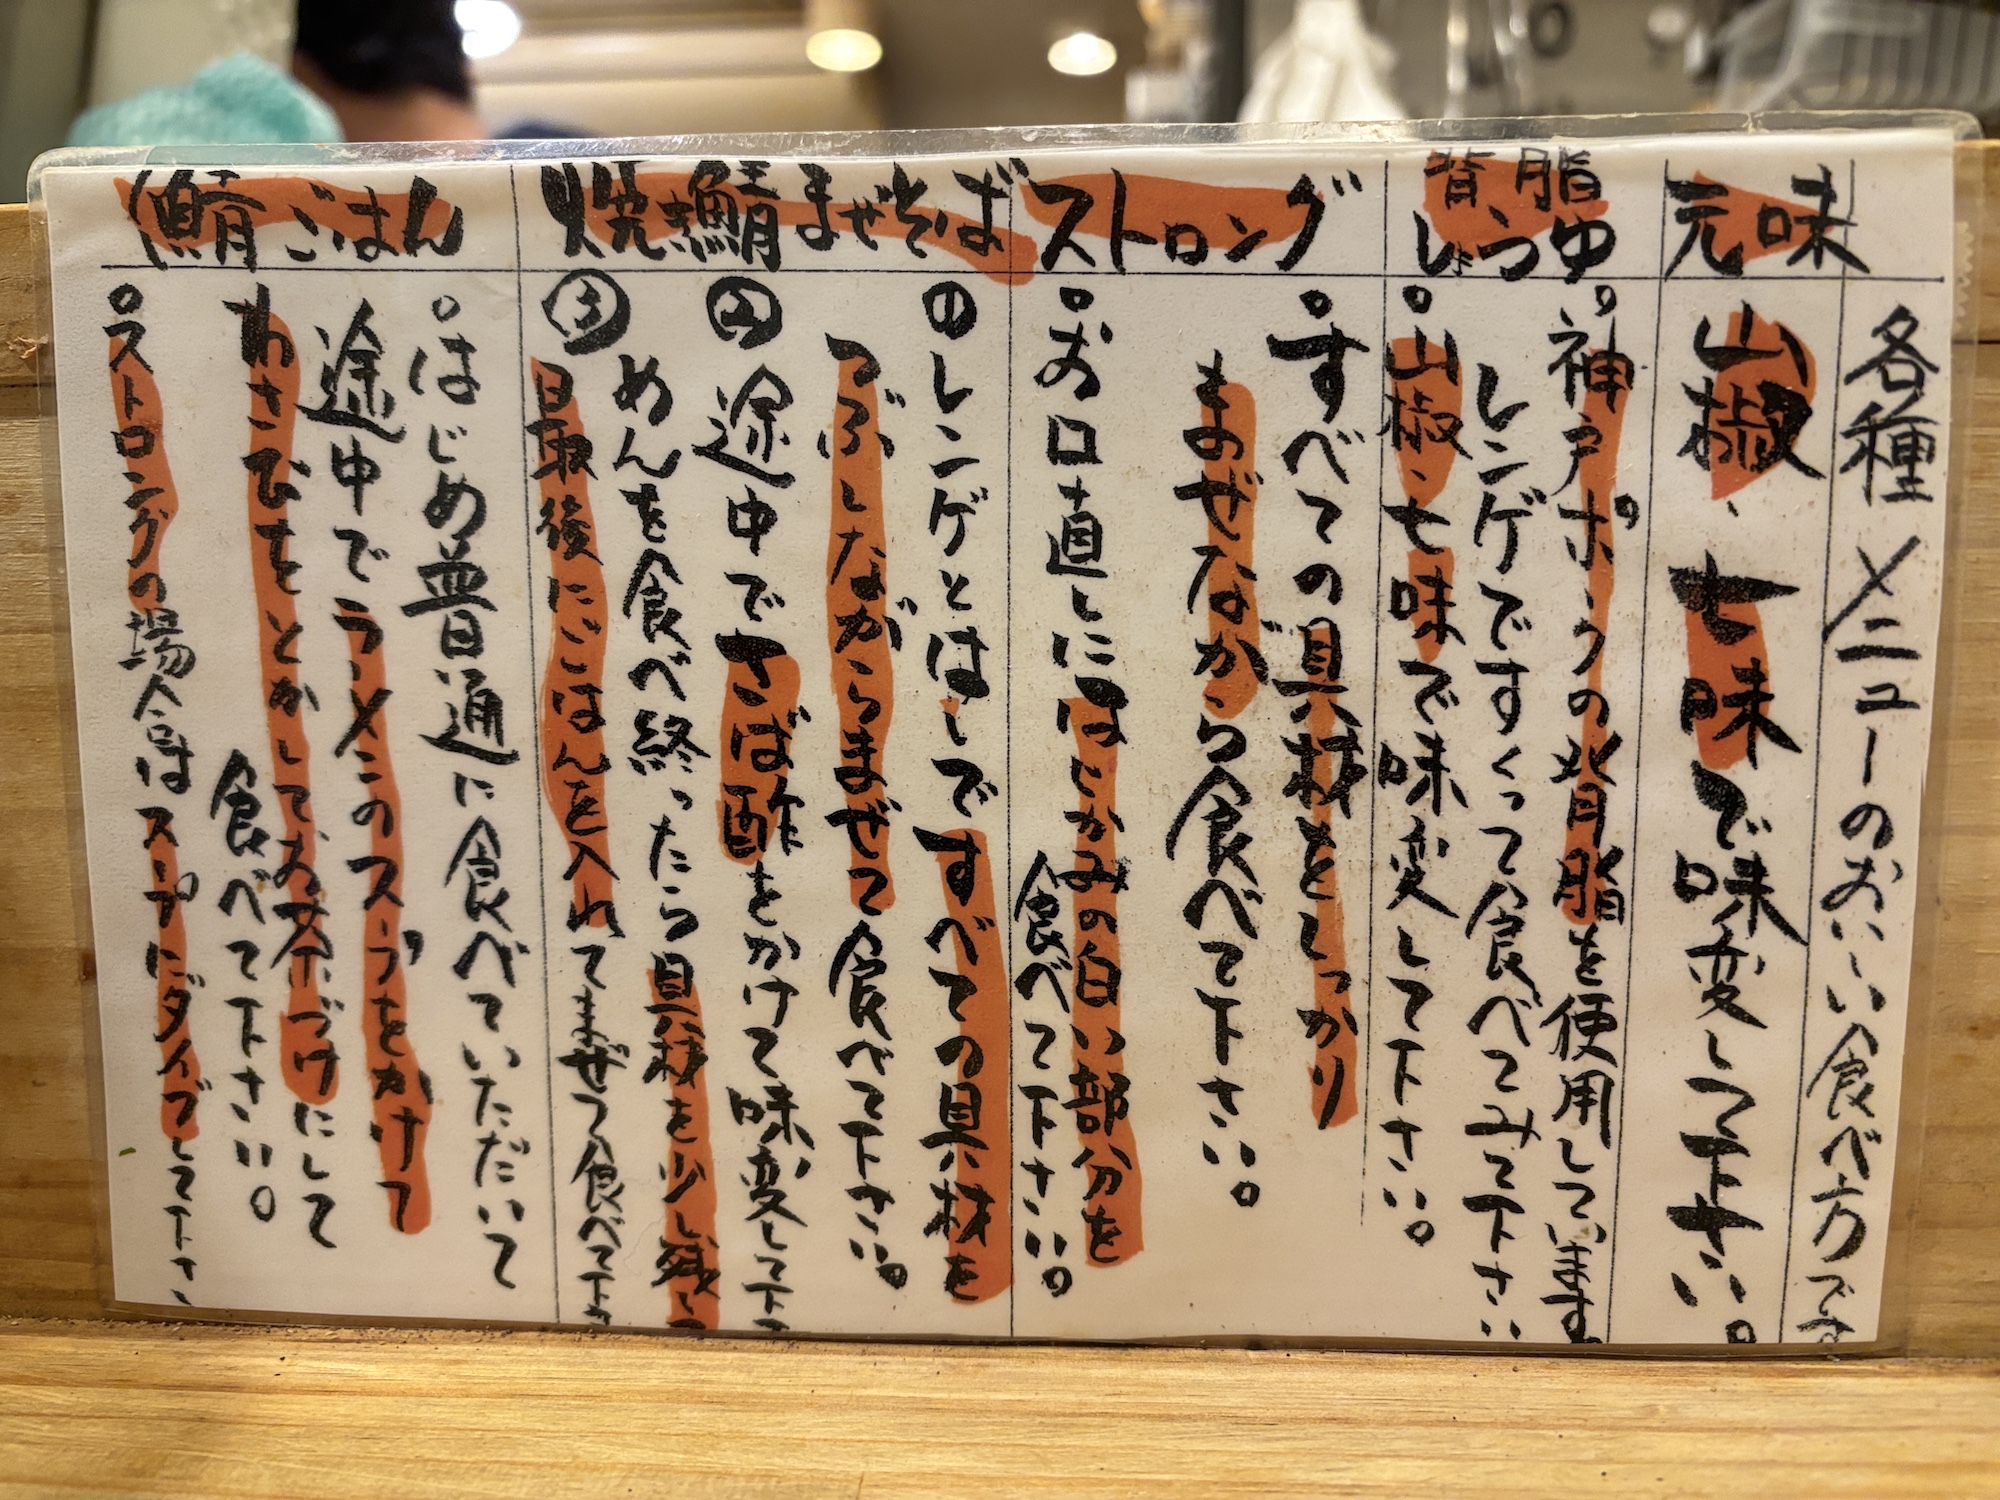 各種メニューのおいしい食べ方です
元味
山椒、七味で味変して下さい。
背脂
しょうゆ
。神戸ポークの背脂を使用しています
レンゲですくって食べてみて下さい
。山椒、七味で味変して下さい。
ストロング
。すべての具材をしっかり
まぜながら食べて下さい。
。お口直しにはにがみの白い部分を
食べて下さい。
焼き鯖まぜそば
①レンゲとはしですべての具材を
つぶしながらまぜて食べて下さい。
②途中でさば酢をかけて味変して下
めんを食べ終ったら具材を少し残し
③最後にごはんを入れてまぜて食べて下さ
鯖ごはん
。はじめ普通に食べていただいて
途中でラーメンのスープをかけて
わさびをとかしてお茶づけにして
食べて下さい。
。ストロングの場合はスープにダイブして下さ